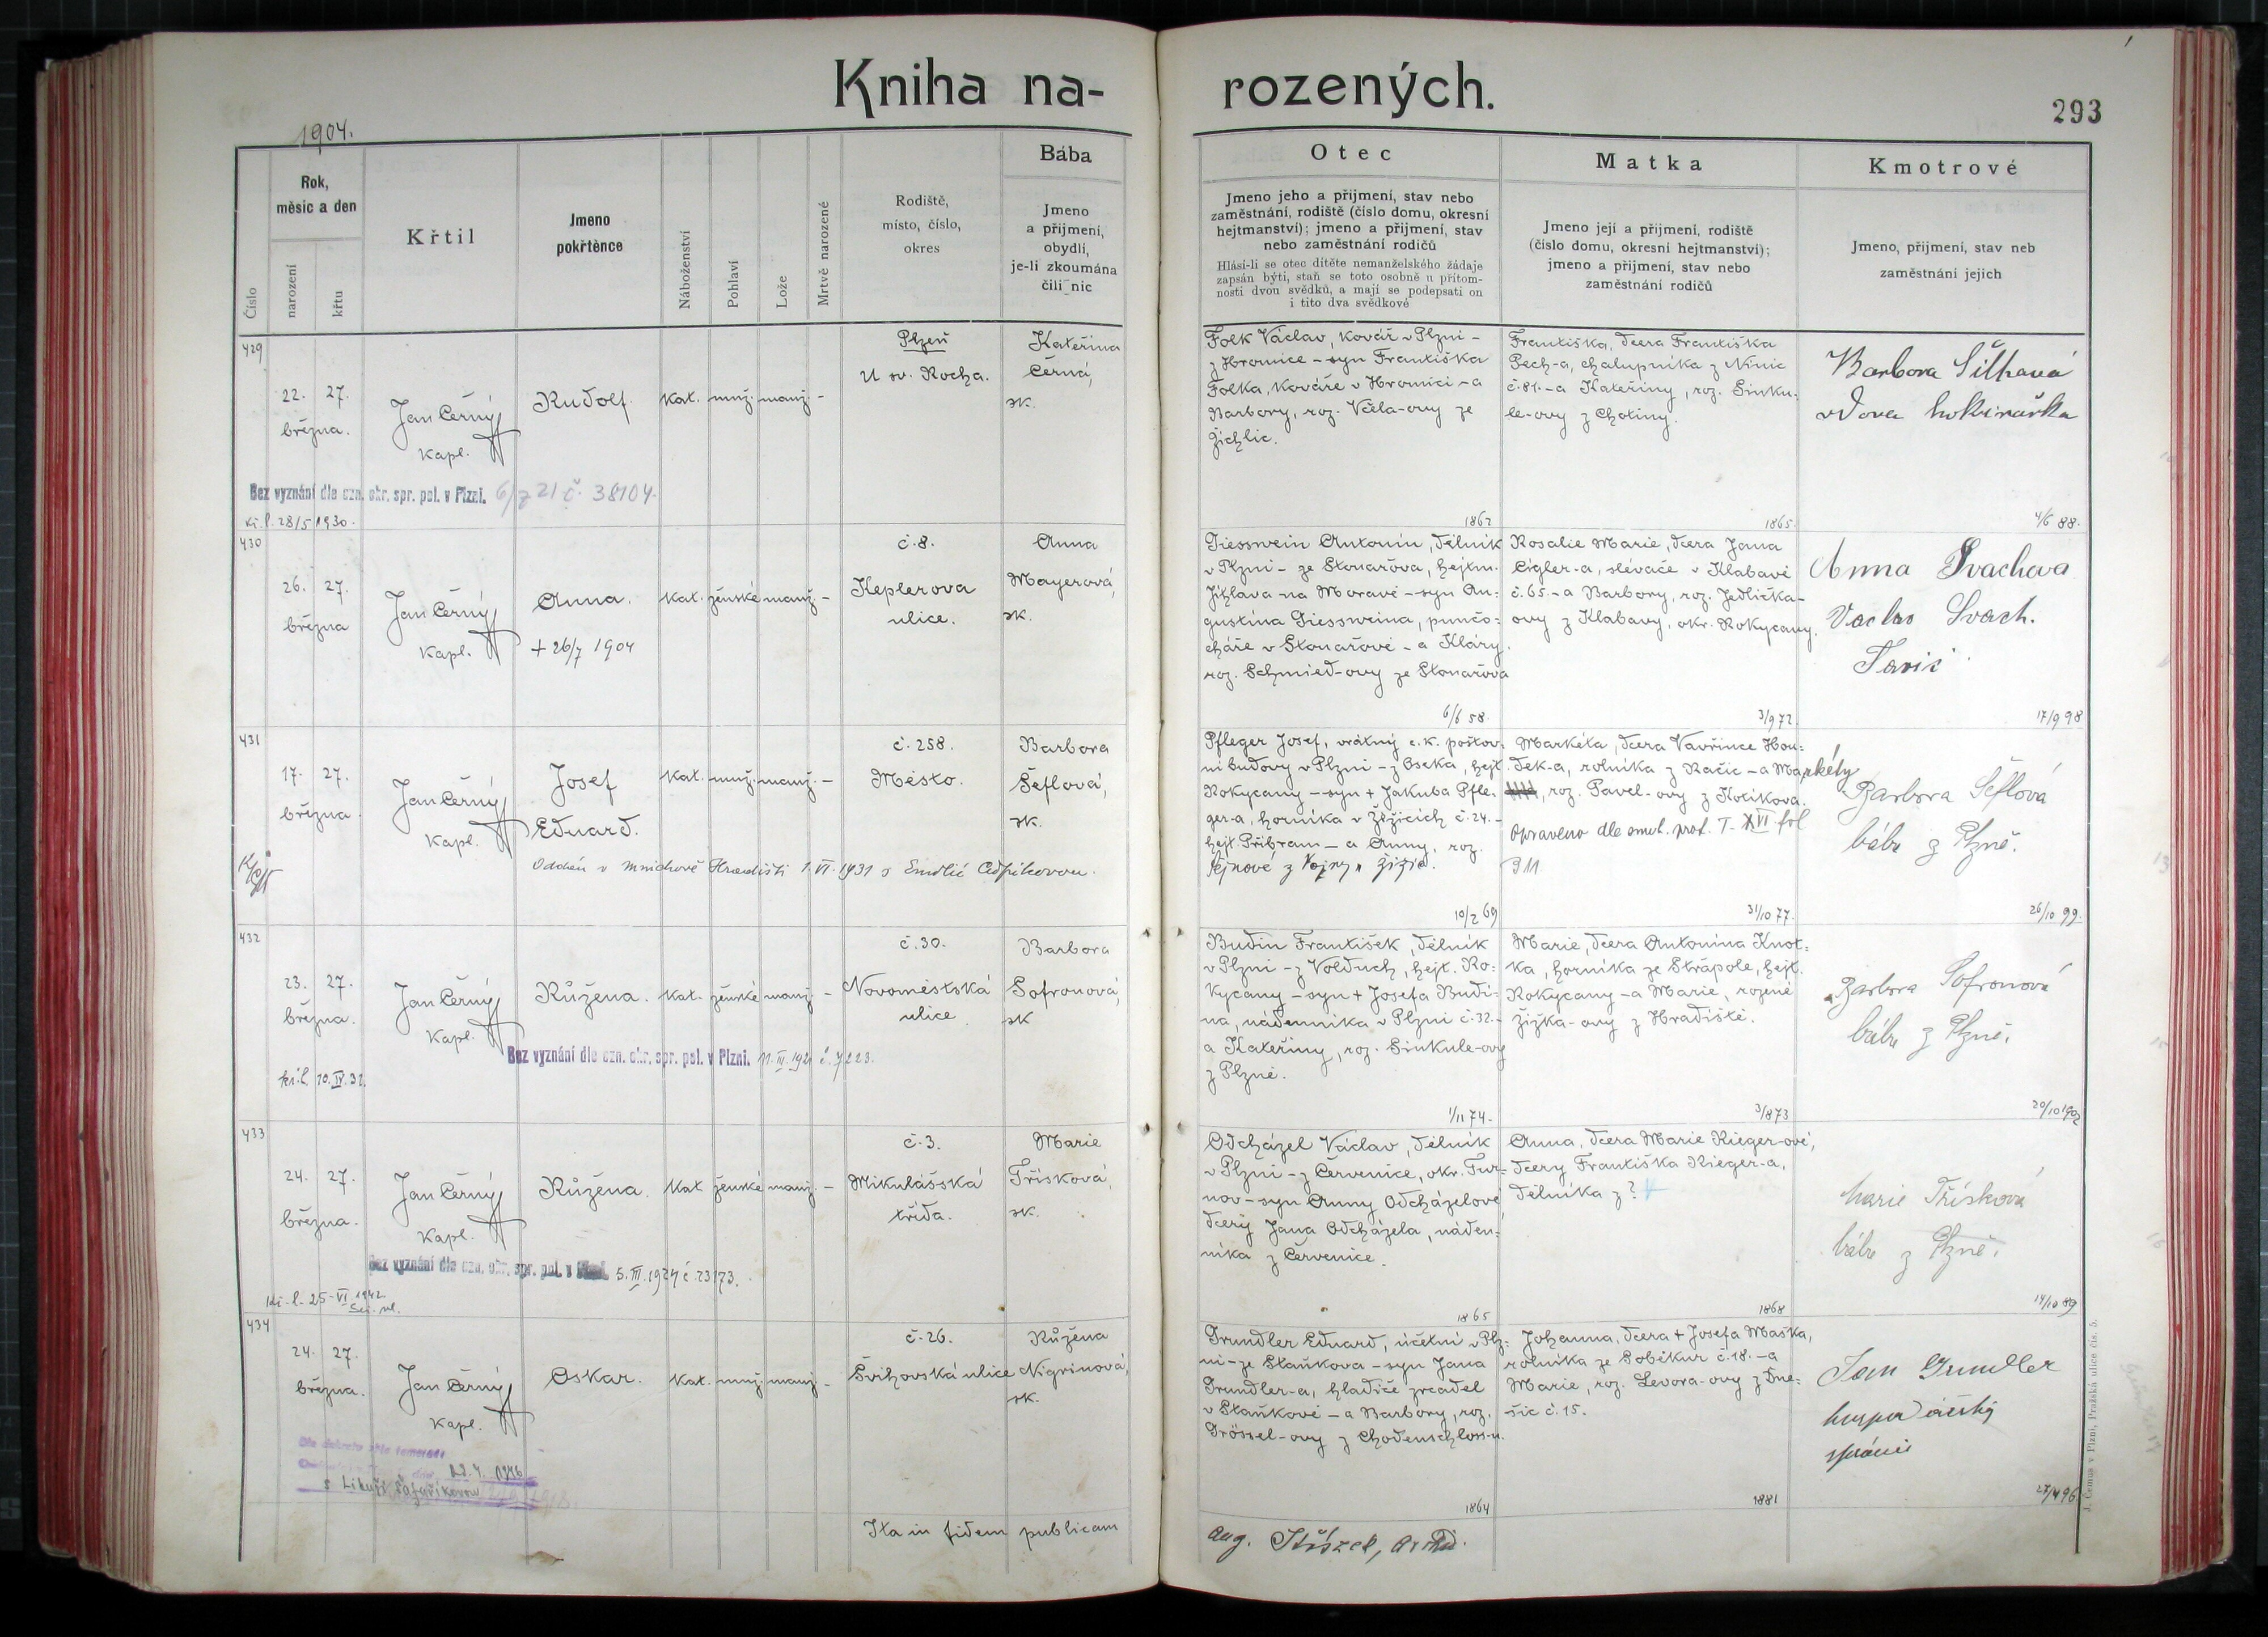 Kniha na-
rozených.
293
1904.
Číslo
Rok,
měsíc a den
narození
křtu
Křtil
Jmeno
pokřtěnce
Náboženství
Pohlaví
Lože
Mrtvě narozené
Rodiště,
místo, číslo,
okres
Bába
Jmeno
a příjmení,
obydlí,
je-li zkoumána
čili nic
Otec
Jmeno jeho a příjmení, stav nebo
zaměstnání, rodiště (číslo domu, okresní
hejtmanství); jmeno a příjmení, stav
nebo zaměstnání rodičů
Hlásí-li se otec dítěte nemanželského žádaje
zapsán býti, staň se toto osobně u přítom-
nosti dvou svědků, a mají se podepsati on
i tito dva svědkové
Matka
Jmeno její a příjmení, rodiště
(číslo domu, okresní hejtmanství);
jmeno a příjmení, stav nebo
zaměstnání rodičů
Kmotrové
Jmeno, příjmení, stav neb
zaměstnání jejich
429
22. 27.
března.
Jan Černý
kapl.
Rudolf.
kat. muž. manž. -
Plzeň
U sv. Rocha.
Kateřina
Černá,
zk.
Bez vyznání dle ozn. okr. spr. pol. v Plzni. 6/7 21 č. 38104.
kř. l. 28/5 1930.
Folk Václav, kovář v Plzni -
z Hromnice - syn Františka
Folka, kováře v Hromnici - a
Barbory, roz. Včela-ovy ze
Žichlic.
1862
Františka, dcera Františka
Pech-a, chalupníka z Ninic
č. 81. - a Kateřiny, roz. Sinku-
le-ovy z Chotiny.
1865.
Barbora Šilhavá
vdova hokinářka
4/6 88.
430
26. 27.
března
Jan Černý
kapl.
Anna.
+ 26/7 1904
kat. ženské manž. -
č. 8.
Keplerova
ulice.
Anna
Mayerová,
zk.
Giesswein Antonín, dělník
v Plzni - ze Stonařova, hejtm.
Jihlava na Moravě - syn Au-
gustina Giessweina, punčo-
cháře v Stonařově - a Kláry,
roz. Schmied-ovy ze Stonařova
6/6 58.
Rosalie Marie, dcera Jana
Cigler-a, slévače v Klabavě
č. 65. - a Barbory, roz. Jedlička-
ovy z Klabavy, okr. Rokycany.
3/9 72.
Anna Svachova
Vaclav Svach.
17/9 98
431
17. 27.
března.
Jan Černý
kapl.
Josef
Eduard.
kat. muž. manž. -
č. 258.
Město.
Barbora
Šeflová,
zk.
Oddán v Mnichově Hradišti 1.VI.1931 s Emilií
Pfleger Josef, vrátný c. k. poštov-
ní budovy v Plzni - z Oseka, hejt.
Rokycany - syn + Jakuba Pfle-
ger-a, horníka v Žežicích č. 24. -
hejt. Příbram - a Anny, roz.
10/2 69
Markéta, dcera Vavřince Hou-
dek-a, rolníka z Račic - a Markéty
, roz. Pavel-ovy z Kotikova.
Opraveno dle prot. T. XVI. fol
311
31/10 77.
Barbora Šeflová
bába z Plzně.
26/10 99.
432
23. 27.
března.
Jan Černý
kapl.
Růžena.
kat. ženské manž. -
č. 30.
Novoměstská
ulice
Barbora
Sofronová,
zk
Bez vyznání dle ozn. okr. spr. pol. v Plzni. 11.III.1921 č. 7223.
kř. l. 10.IV.31.
Budín František, dělník
v Plzni - z Volduch, hejt. Ro-
kycany - syn + Josefa Budí-
na, nádenníka v Plzni č. 32. -
a Kateřiny, roz. Sinkule-ovy
z Plzně.
1/11 74.
Marie, dcera Antonína Knot-
ka, horníka ze Strápole, hejt.
Rokycany - a Marie, rozené
Žižka-ovy z Hradiště.
3/8 73
Barbora Sofronová
bába z Plzně.
20/10 1902
433
24. 27.
března.
Jan Černý
kapl.
Růžena.
kat ženské manž. -
č. 3.
Mikulášská
třída.
Marie
Třísková,
zk.
Bez vyznání dle ozn. okr. spr. pol. v Plzni. 5.III.1924 č. 23173.
kř. l. 25-VI.1942
Odcházel Václav, dělník
v Plzni - z Červenice, okr. Tur-
nov - syn Anny Odcházelové,
dcery Jana Odcházela, náden-
níka z Červenice.
1865
Anna, dcera Marie Rieger-ové,
dcery Františka Rieger-a,
dělníka z?
1868
Marie Třísková
bába z Plzně.
14/10 89
434
24. 27.
března.
Jan Černý
kapl.
Oskar.
kat. muž. manž. -
č. 26.
Švihovská ulice
Růžena
Nigrinová,
zk.
s Libuší Šafaříkovou
Grundler Eduard, účetní v Plz-
ni - ze Staňkova - syn Jana
Grundler-a, hladiče zrcadel
v Staňkově - a Barbory, roz.
Grössel-ovy z Chodenschloss-u.
1864
Johanna, dcera + Josefa Maška,
rolníka ze Soběkur č. 18. - a
Marie, roz. Levora-ovy z Dne-
šic č. 15.
1881
Jan Grundler
správce
27/4 96
Ita in fidem publicam
Aug.
J. Černus v Plzni, Pražská ulice čís. 5.